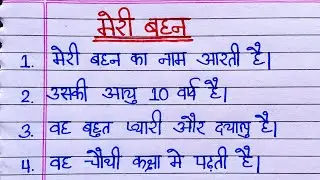 मेरी बहन
1. मेरी बहन का नाम आरती है।
2. उसकी आयु 10 वर्ष है।
3. वह बहुत प्यारी और दयालु है।
4. वह चौथी कक्षा मे पढ़ती है।